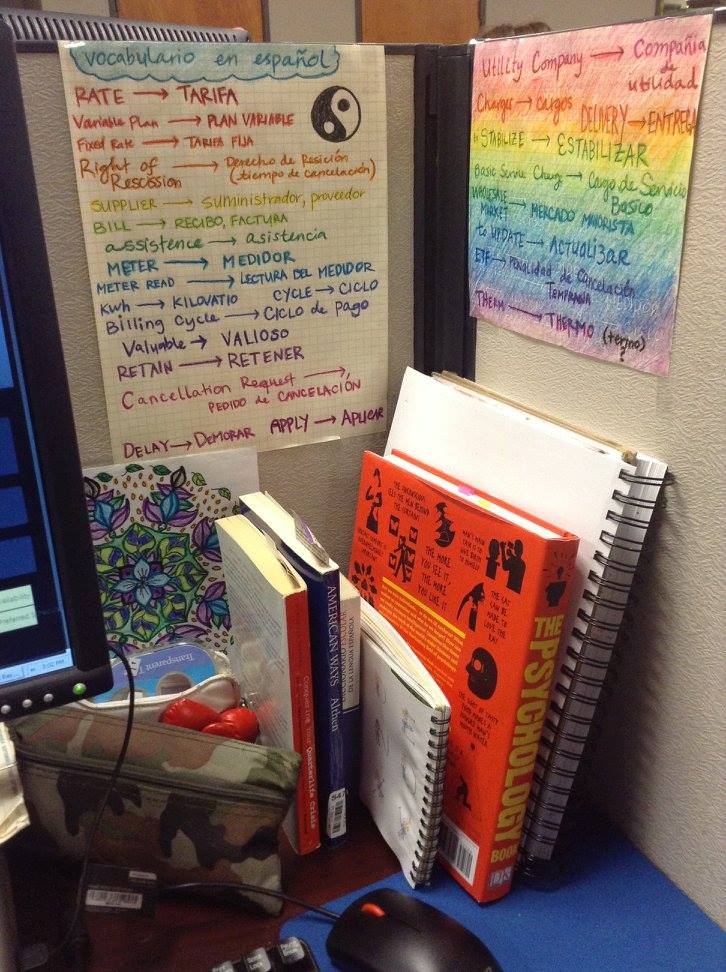 vocabulario en español
RATE → TARIFA
Variable Plan → PLAN VARIABLE
Fixed Rate → TARIFA FIJA
Right of Rescission → Derecho de Resición
(tiempo de cancelación)
SUPPLIER → suministrador, proveedor
BILL → RECIBO, FACTURA
assistence → asistencia
METER → MEDIDOR
METER READ → LECTURA DEL MEDIDOR
Kwh → KILOVATIO CYCLE → CICLO
Billing Cycle → CICLO de Pago
Valuable → VALIOSO
RETAIN → RETENER
Cancellation Request →
PEDIDO de CANCELACIÓN
DELAY → DEMORAR APPLY → APLICAR
Utility Company → Compañia
de
utilidad
Charges → cargos
DELIVERY → ENTREGA
to STABILIZE → ESTABILIZAR
Basic Servie Charge → Cargo de Servicio
Basico
WHOLESALE
MARKET → MERCADO MAYORISTA
to UPDATE → ACTUALIZAR
ETF → PENALIDAD de Cancelación
TEMPRANA
THERM → THERMO (termo)
?
Transparent
Quarterlife Crisis
AMERICAN WAYS Althen
THE MORE
YOU SEE IT,
THE MORE
YOU LIKE IT
THE CAT
CAN BE
MADE TO
LOVE THE
RAT
THE PSYCHOLOGY BOOK
DK
5:02 PM